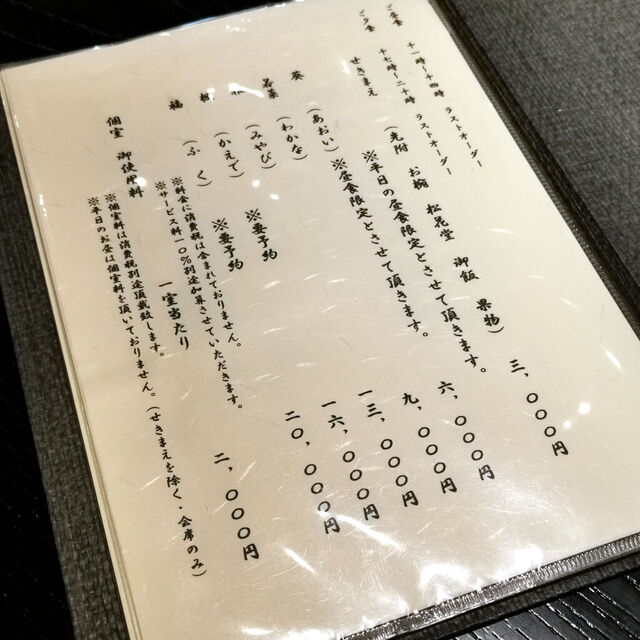 十一時～十四時 ラストオーダー
十七時～二十時 ラストオーダー
せきまえ (先附 お椀 松花堂 御飯 果物) 三、〇〇〇円
※平日の昼食限定とさせて頂きます。
葵 (あおい) ※昼食限定とさせて頂きます。 六、〇〇〇円
若菜 (わかな) 九、〇〇〇円
(みやび) ※要予約 一三、〇〇〇円
(かえで) ※要予約 一六、〇〇〇円
福 (ふく) 二〇、〇〇〇円
※料金に消費税は含まれておりません。
※サービス料一〇%別途加算させていただきます。
個室 御使用料 一室当たり 二、〇〇〇円
※個室料は消費税別途頂戴致します。
※平日のお昼は個室料を頂いておりません。(せきまえを除く・会席のみ)